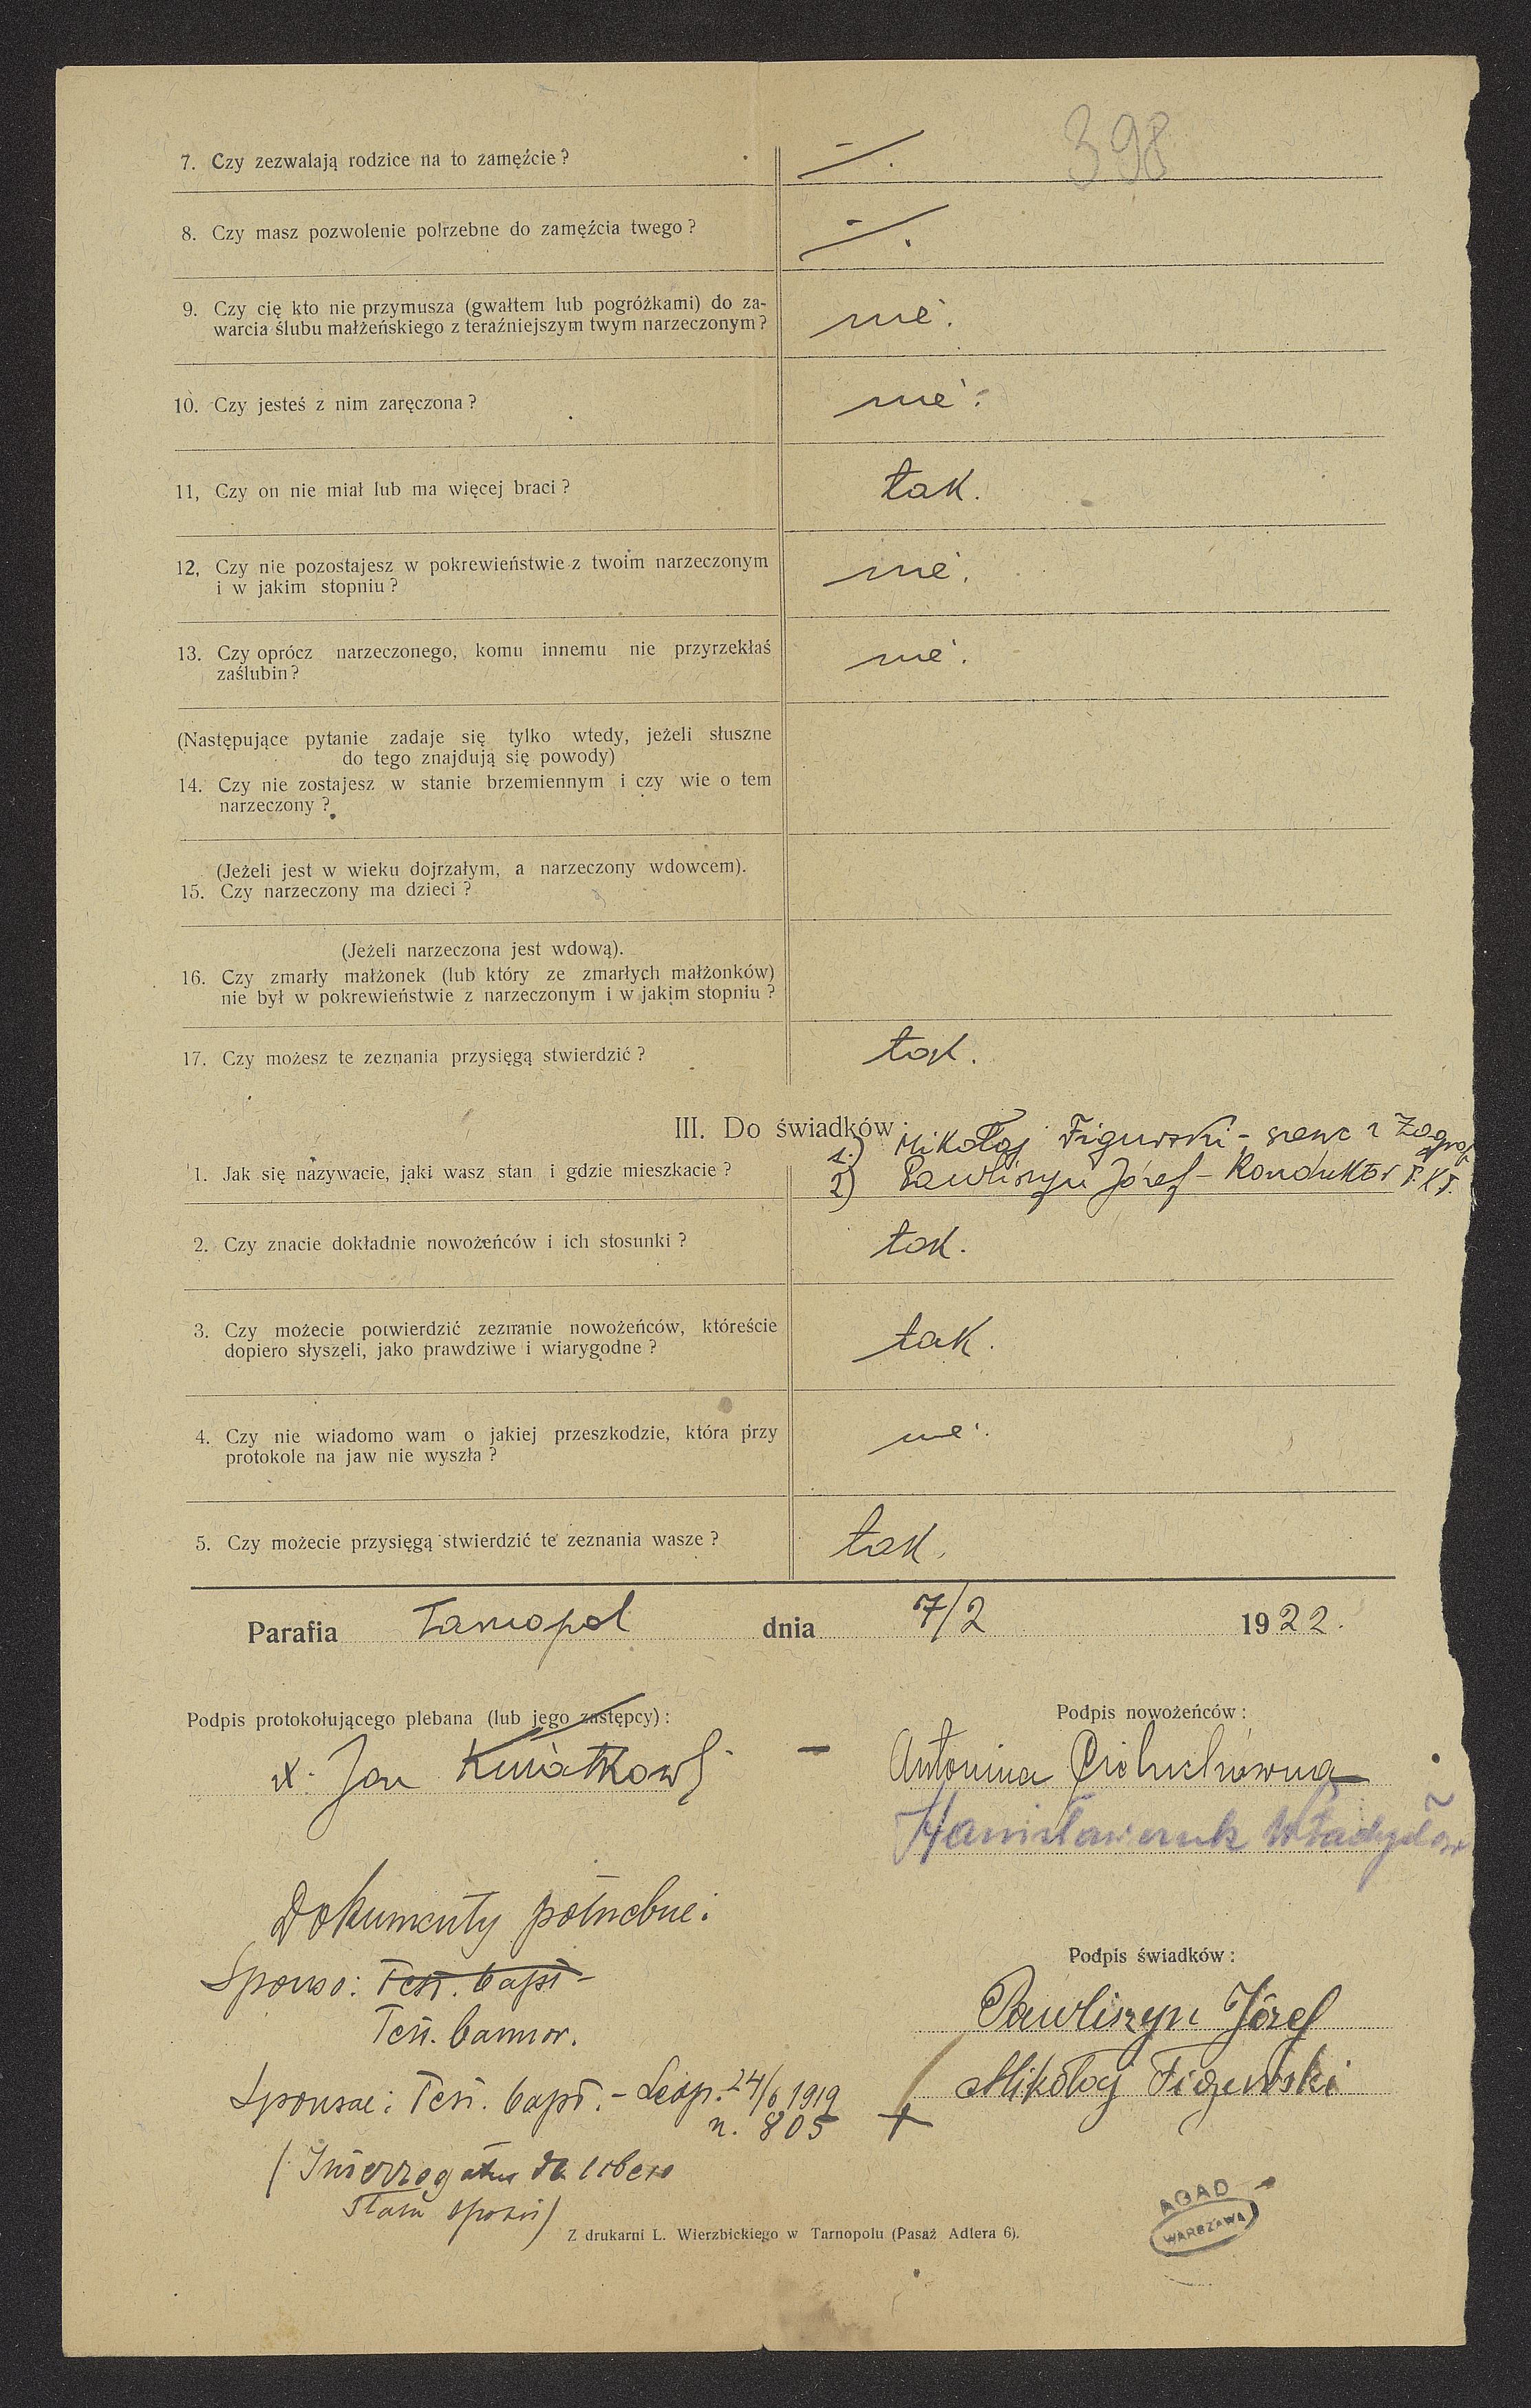 398
7. Czy zezwalają rodzice na to zamęźcie?
8. Czy masz pozwolenie potrzebne do zamęźcia twego?
9. Czy cię kto nie przymusza (gwałtem lub pogróżkami) do za-
warcia ślubu małżeńskiego z teraźniejszym twym narzeczonym?
nie.
10. Czy jesteś z nim zaręczona?
nie.
11, Czy on nie miał lub ma więcej braci?
tak.
12, Czy nie pozostajesz w pokrewieństwie z twoim narzeczonym
i w jakim stopniu?
nie.
13. Czy oprócz narzeczonego, komu innemu nie przyrzekłaś
zaślubin?
nie.
(Następujące pytanie zadaje się tylko wtedy, jeżeli słuszne
do tego znajdują się powody)
14. Czy nie zostajesz w stanie brzemiennym i czy wie o tem
narzeczony?
(Jeżeli jest w wieku dojrzałym, a narzeczony wdowcem).
15. Czy narzeczony ma dzieci?
(Jeżeli narzeczona jest wdową).
16. Czy zmarły małżonek (lub który ze zmarłych małżonków)
nie był w pokrewieństwie z narzeczonym i w jakim stopniu?
17. Czy możesz te zeznania przysięgą stwierdzić?
tak.
III. Do świadków:
1. Jak się nazywacie, jaki wasz stan i gdzie mieszkacie?
1.) Mikołaj Figurski - szewc z
2) Pawliszyn Józef - Konduktor
2. Czy znacie dokładnie nowożeńców i ich stosunki?
tak.
3. Czy możecie potwierdzić zeznanie nowożeńców, któreście
dopiero słyszeli, jako prawdziwe i wiarygodne?
tak.
4. Czy nie wiadomo wam o jakiej przeszkodzie, która przy
protokole na jaw nie wyszła?
nie.
5. Czy możecie przysięgą stwierdzić te zeznania wasze?
tak.
Parafia Tarnopol dnia 7/2 1922.
Podpis protokołującego plebana (lub jego zastępcy):
x. Jan Kwiatkowski
Podpis nowożeńców:
Antonina
Władysław
Dokumenty potrzebne:
Sponso: Test. bapt.
Test. bannor.
Sponsae: Test. bapt. - Leop. 24/6 1919
n. 805
(Interrogatus de libero
statu sponsi)
Podpis świadków:
Pawliszyn Józef
+ Mikołaj Figurski
Z drukarni L. Wierzbickiego w Tarnopolu (Pasaż Adlera 6).
AGAD
WARSZAWA